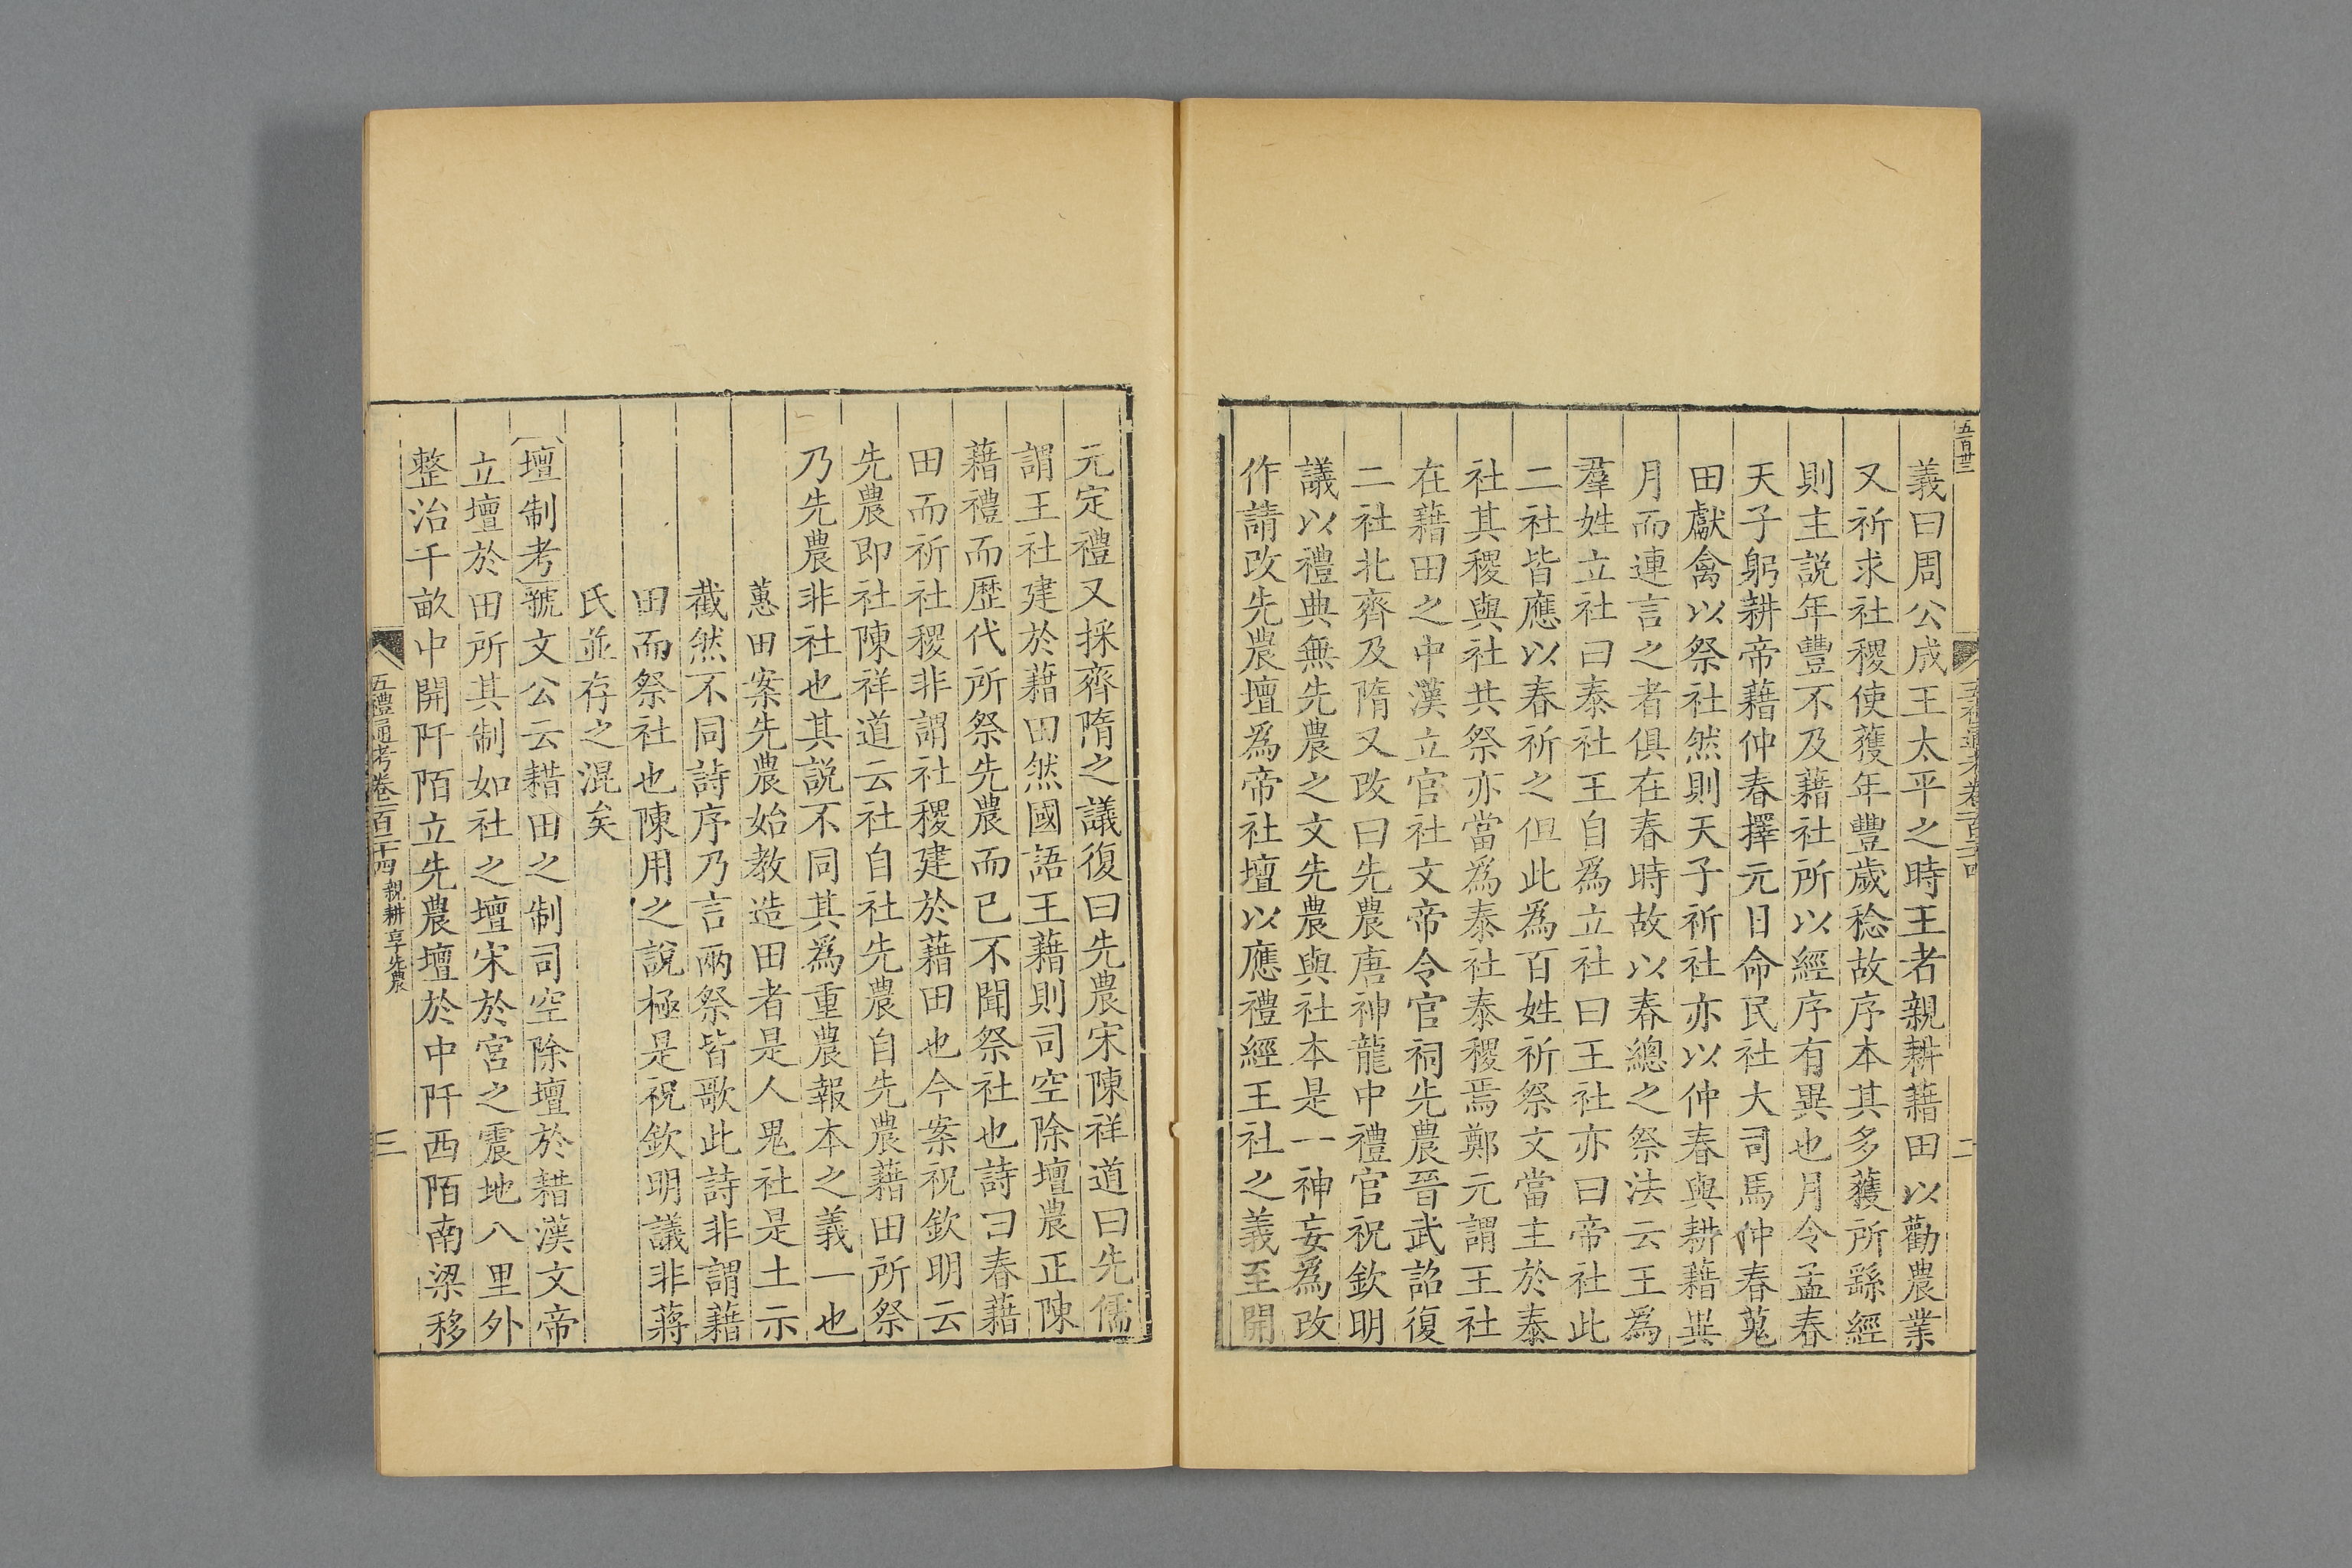 五百卅三
義曰周公成王太平之時王者親耕藉田以勸農業
又祈求社稷使獲年豐歲稔故序本其多獲所繇經
則主説年豐不及藉社所以經序有異也月令孟春
天子躬耕帝藉仲春擇元日命民社大司馬仲春蒐
田獻禽以祭社然則天子祈社亦以仲春與耕藉異
月而連言之者俱在春時故以春總之祭法云王爲
羣姓立社曰泰社王自爲立社曰王社亦曰帝社此
二社皆應以春祈之但此爲百姓祈祭文當主於泰
社其稷與社共祭亦當爲泰社泰稷焉鄭元謂王社
在藉田之中漢立官社文帝令官祠先農晉武詔復
二社北齊及隋又改曰先農唐神龍中禮官祝欽明
議以禮典無先農之文先農與社本是一神妄爲改
作請改先農壇爲帝社壇以應禮經王社之義至開
元定禮又採齊隋之議復曰先農宋陳祥道曰先儒
謂王社建於藉田然國語王藉則司空除壇農正陳
藉禮而歴代所祭先農而已不聞祭社也詩曰春藉
田而祈社稷非謂社稷建於藉田也今案祝欽明云
先農即社陳祥道云社自社先農自先農藉田所祭
乃先農非社也其説不同其爲重農報本之義一也
蕙田案先農始教造田者是人鬼社是土示
截然不同詩序乃言兩祭皆歌此詩非謂藉
田而祭社也陳用之説極是祝欽明議非蔣
氏並存之混矣
壇制考虢文公云耤田之制司空除壇於耤漢文帝
立壇於田所其制如社之壇宋於宮之震地八里外
整治千畝中開阡陌立先農壇於中阡西陌南梁移
五禮通考卷一百二十四 親耕享先農 三